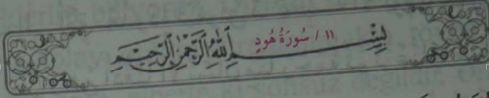 ١١ / سُورَةُ هُودٍ
بِسْمِ اللهِ الرَّحْمٰنِ الرَّحِيمِ